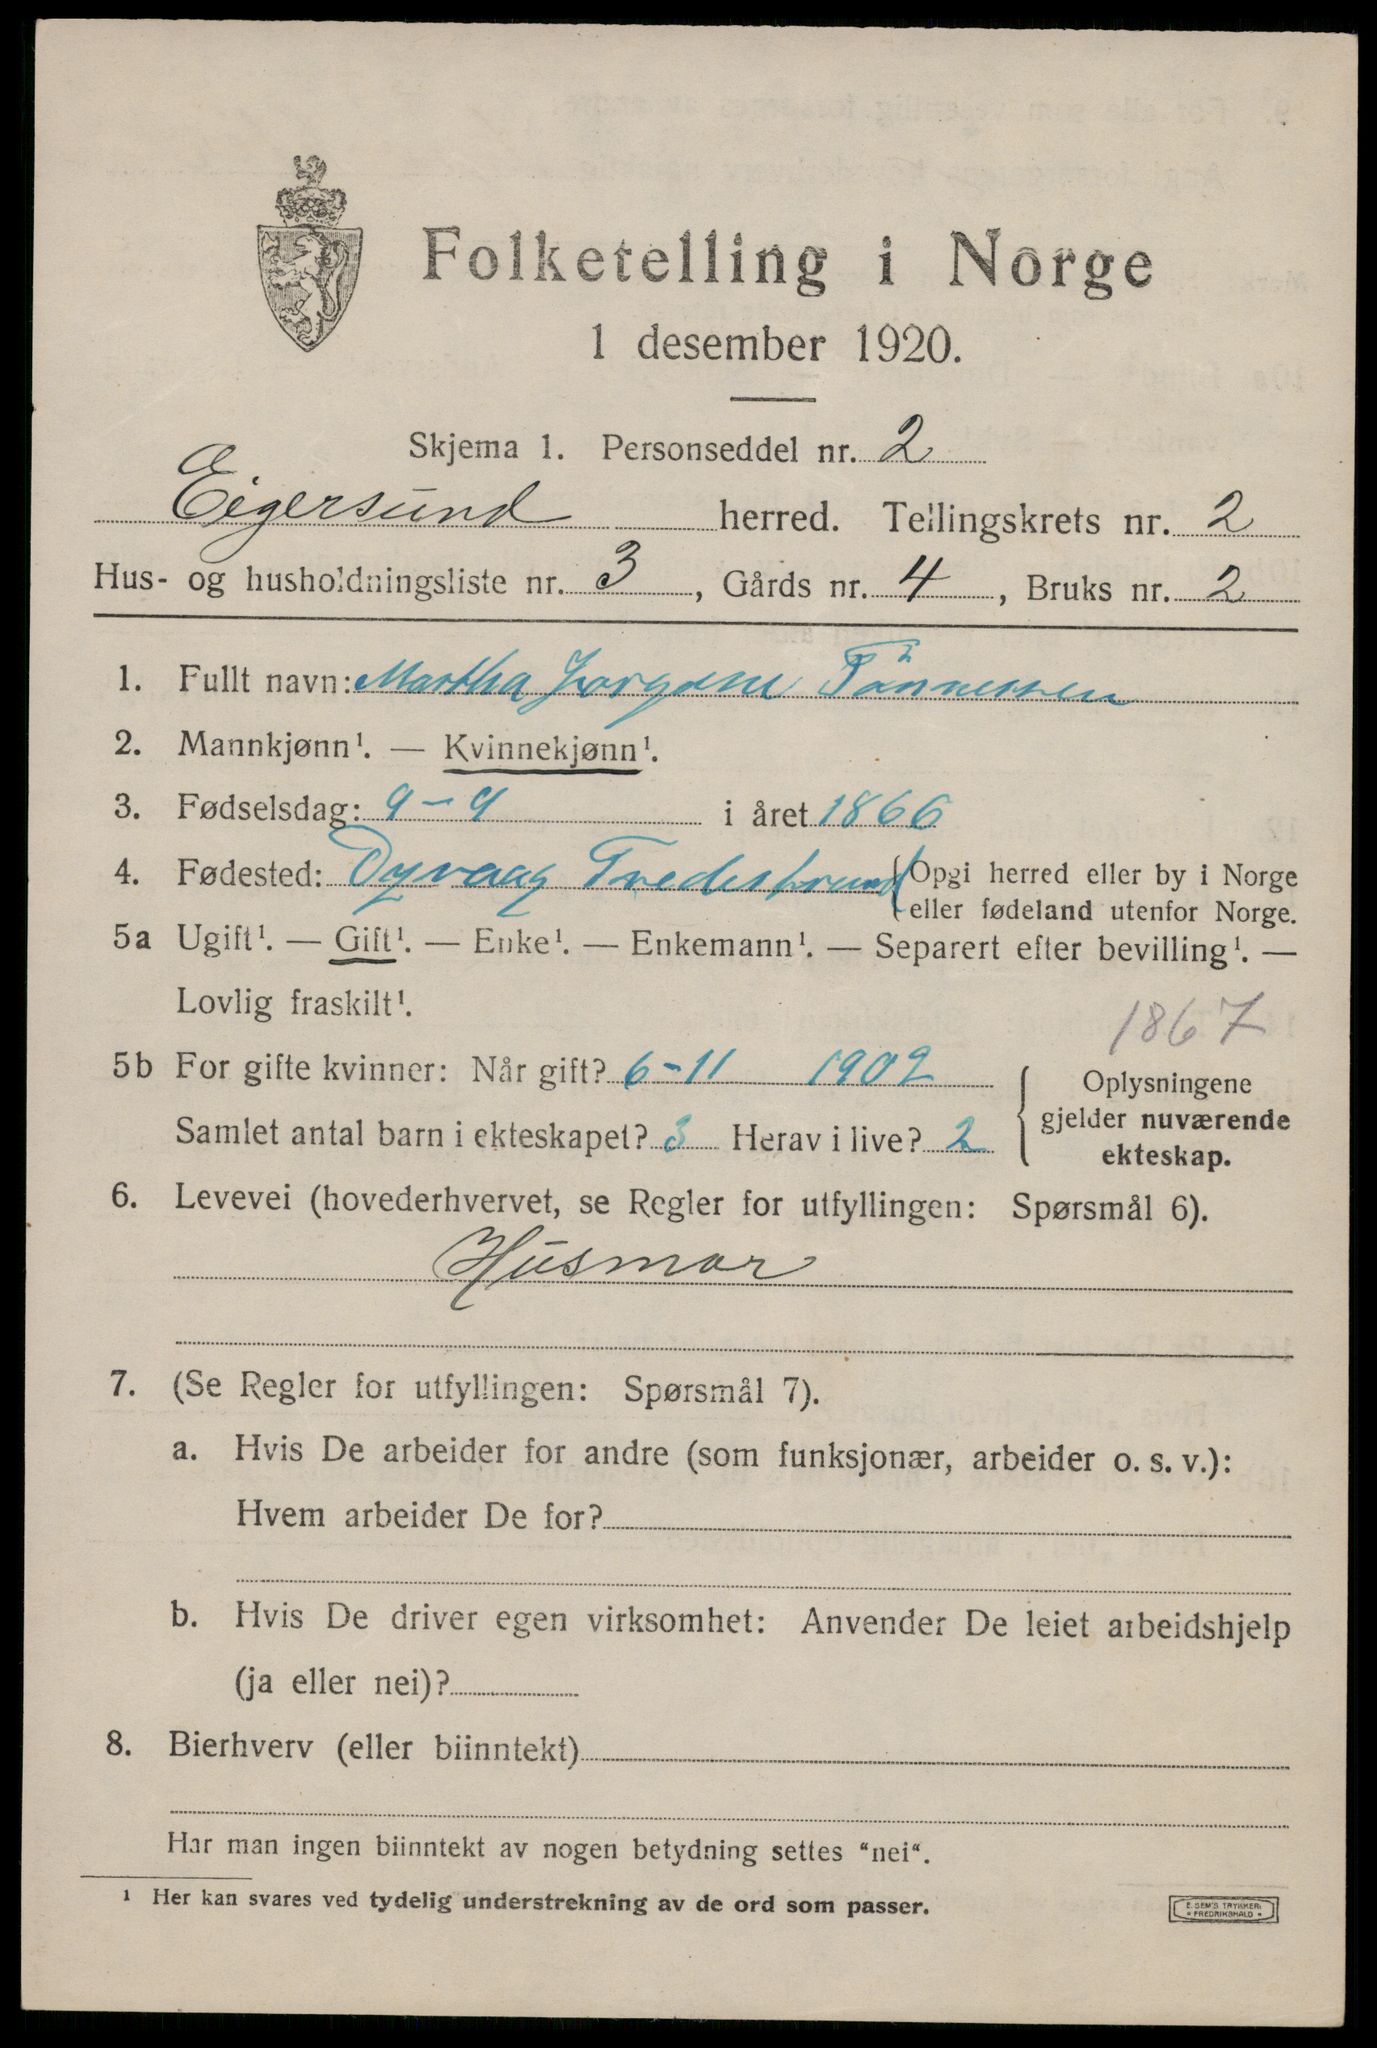 Folketelling i Norge
1 desember 1920.
Skjema 1. Personseddel nr. 2
Eigersund herred. Tellingskrets nr. 2
Hus- og husholdningsliste nr. 3, Gårds nr. 4, Bruks nr. 2
1. Fullt navn: Martha Jorgine Tönnessen
2. Mannkjønn¹. — Kvinnekjønn¹.
3. Fødselsdag: 9-9 i året 1866
4. Fødested: Dyvaag Tvedestrand {Opgi herred eller by i Norge
eller fødeland utenfor Norge.
5a Ugift¹. — Gift¹. — Enke¹. — Enkemann¹. — Separert efter bevilling¹. —
Lovlig fraskilt¹.
1867
5b For gifte kvinner: Når gift? 6-11 1902
Samlet antal barn i ekteskapet? 3 Herav i live? 2
{ Oplysningene
gjelder nuværende
ekteskap.
6. Levevei (hovederhvervet, se Regler for utfyllingen: Spørsmål 6).
Husmor
7. (Se Regler for utfyllingen: Spørsmål 7).
a. Hvis De arbeider for andre (som funksjonær, arbeider o. s. v.):
Hvem arbeider De for?
b. Hvis De driver egen virksomhet: Anvender De leiet arbeidshjelp
(ja eller nei)?
8. Bierhverv (eller biinntekt)
Har man ingen biinntekt av nogen betydning settes "nei".
¹ Her kan svares ved tydelig understrekning av de ord som passer.
E. SEM'S TRYKKERI
* FREDRIKSHALD *